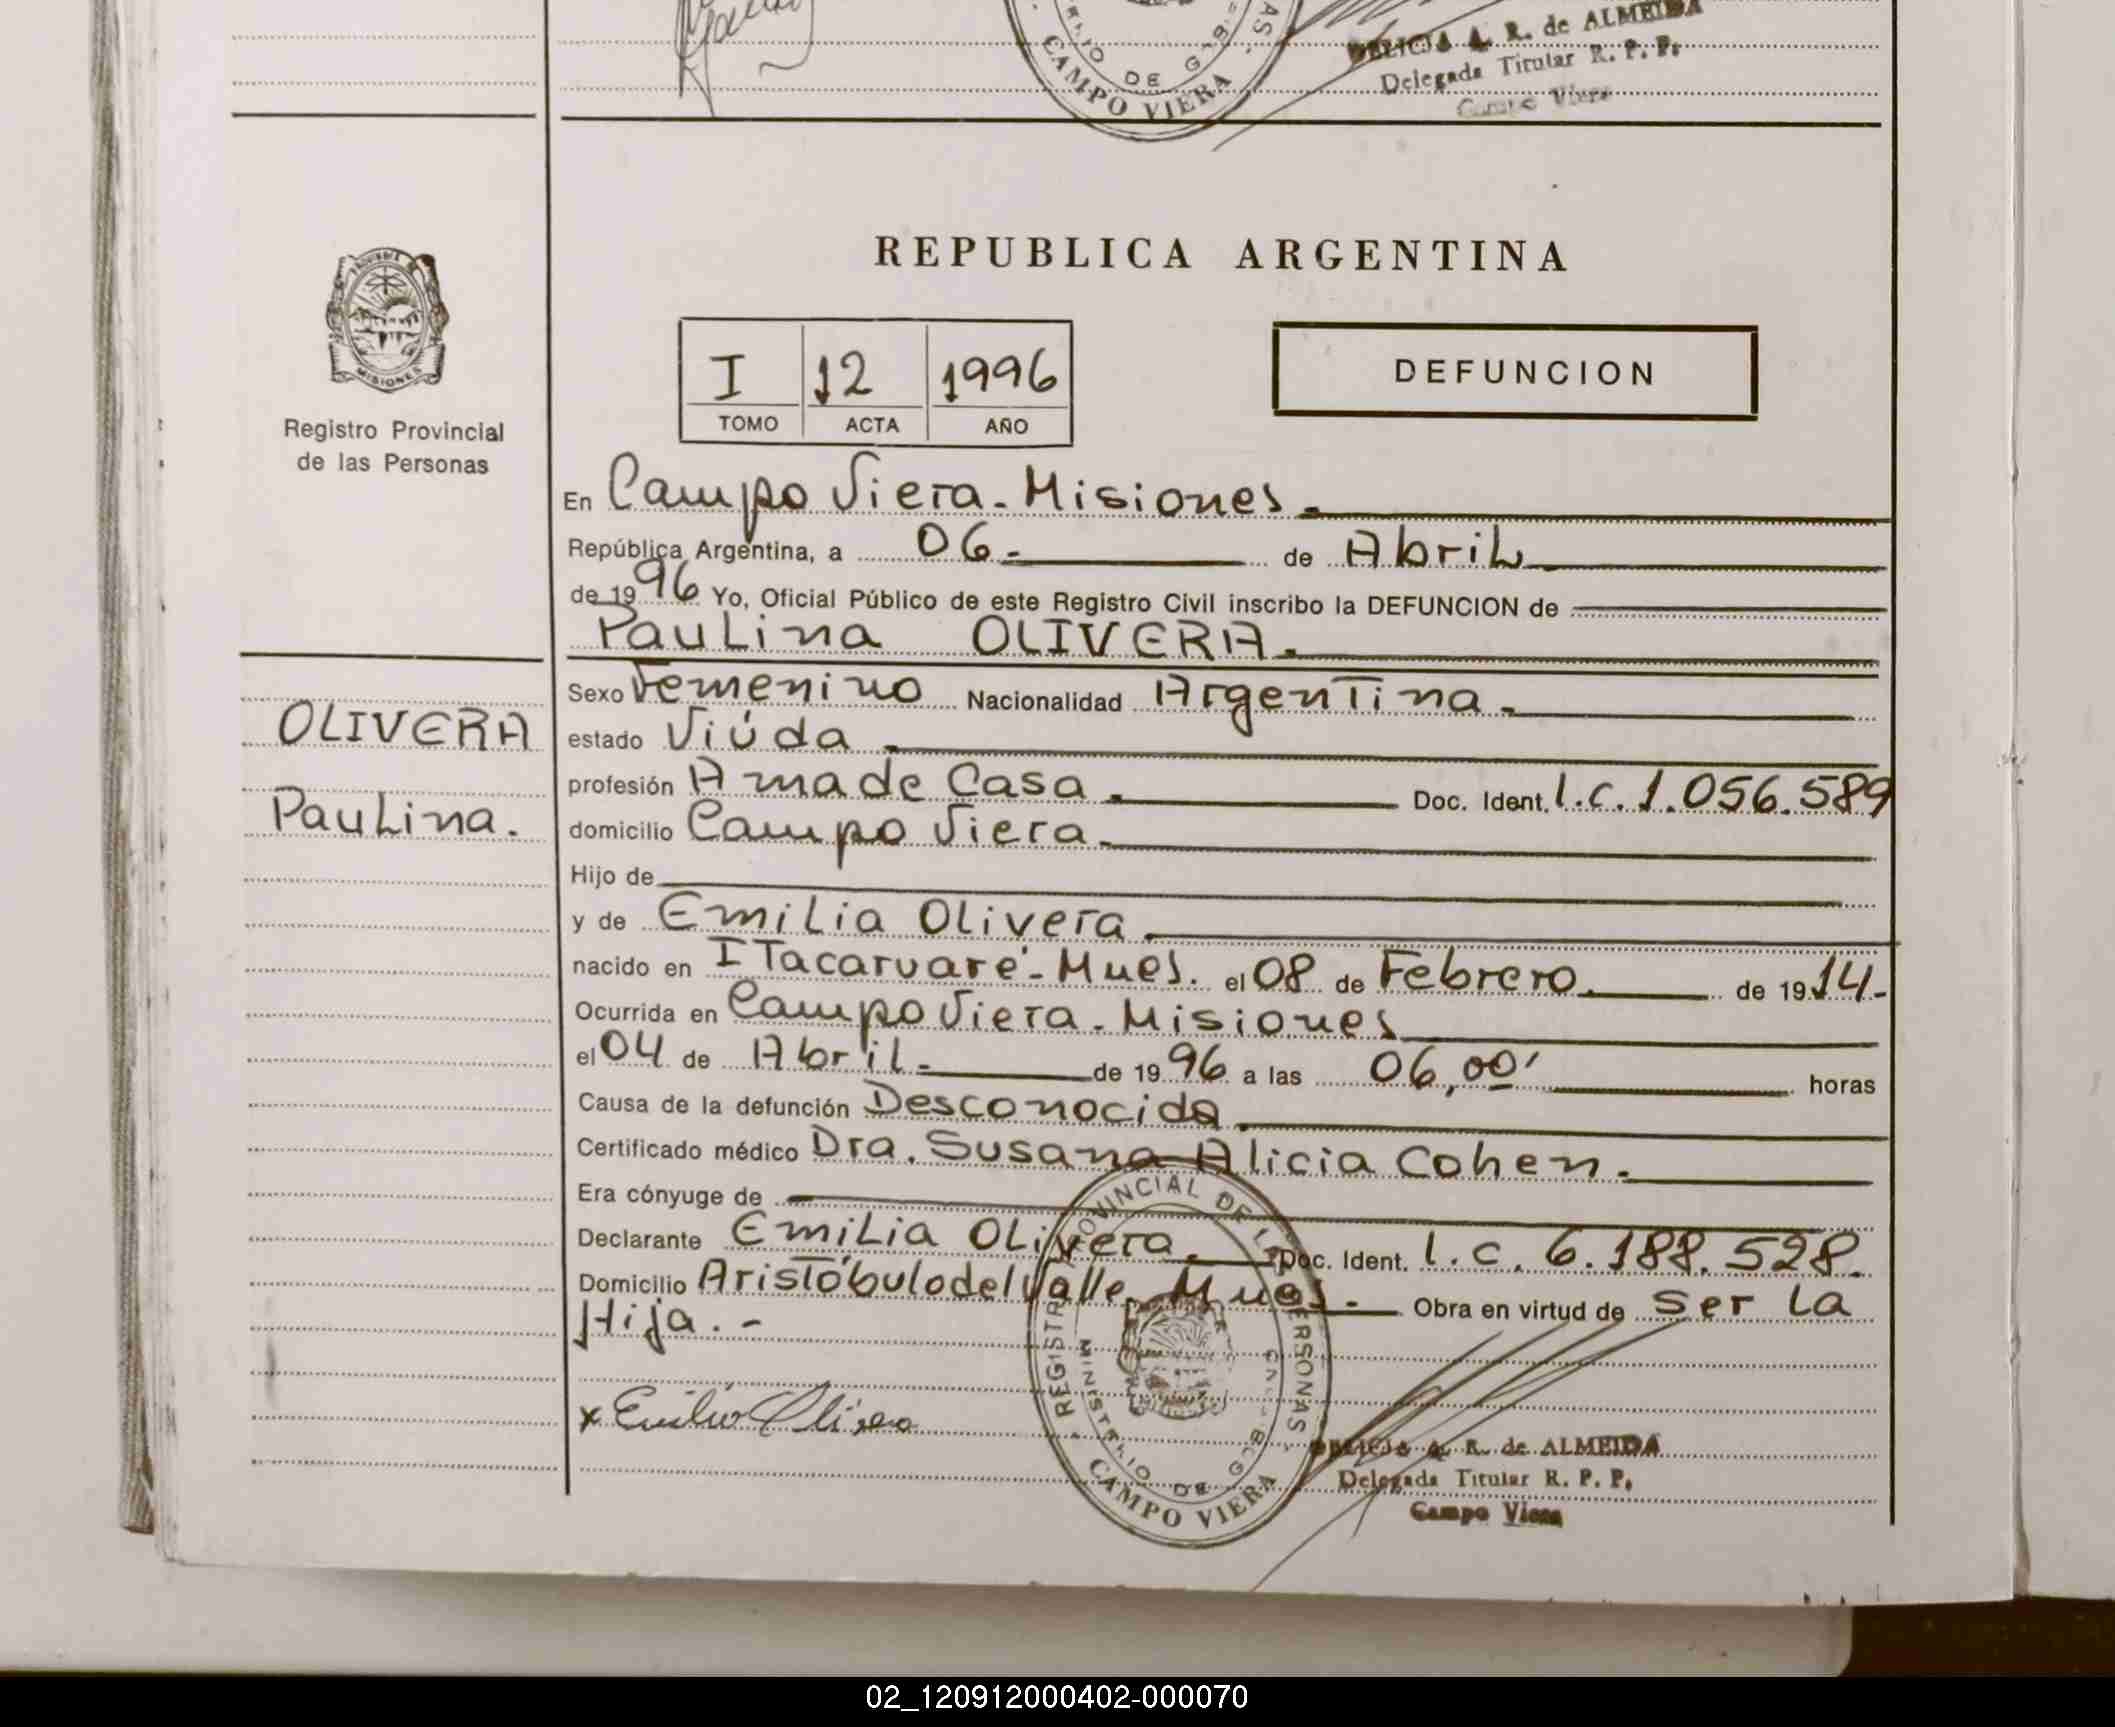 DELICIA A. R. de ALMEIDA
Delegada Titular R. P. P.
Campo Viera
MINISTERIO DE GOB.
CAMPO VIERA
REPUBLICA ARGENTINA
MISIONES
Registro Provincial
de las Personas
I 12 1996
TOMO ACTA AÑO
DEFUNCION
En Campo Viera - Misiones.
República Argentina, a 06. de Abril
de 1996 Yo, Oficial Público de este Registro Civil inscribo la DEFUNCION de
Paulina OLIVERA.
OLIVERA
Paulina.
Sexo Femenino Nacionalidad Argentina.
estado Viúda
profesión Ama de Casa. Doc. Ident. l.c. 1.056.589
domicilio Campo Viera
Hijo de
y de Emilia Olivera
nacido en ITacaruaré - Mnes. el 08 de Febrero. de 1914.-
Ocurrida en Campo Viera - Misiones
el 04 de Abril de 1996 a las 06,00' horas
Causa de la defunción Desconocida
Certificado médico Dra. Susana Alicia Cohen.
Era cónyuge de
Declarante Emilia Olivera. Doc. Ident. l.c. 6.188.528.
Domicilio Aristóbulo del Valle - Mnes. - Obra en virtud de ser la
Hija. -
x Emilia Olivera
REGISTRO PROVINCIAL DE LAS PERSONAS
MINISTERIO DE GOB.
CAMPO VIERA
DELICIA A. R. de ALMEIDA
Delegada Titular R. P. P.
Campo Viera
02_120912000402-000070